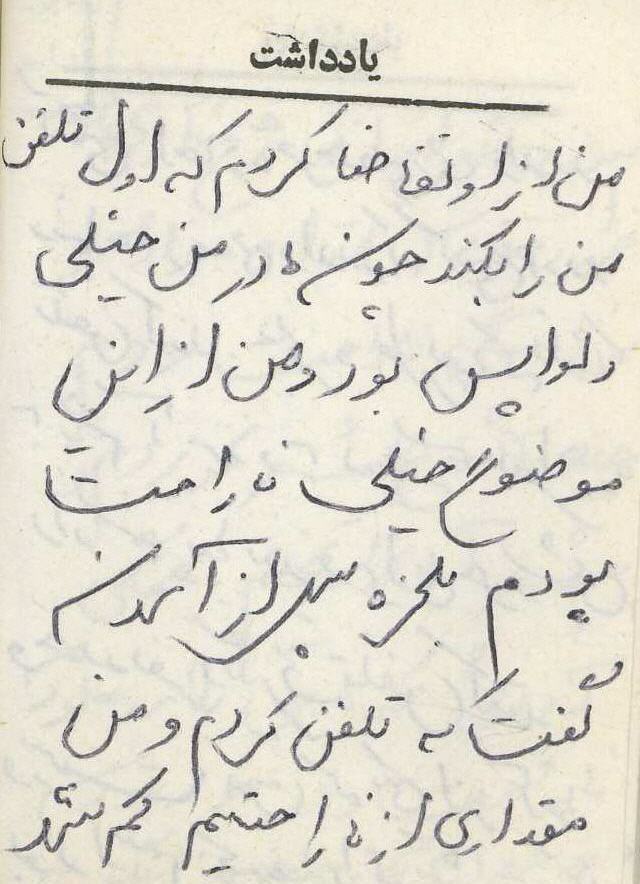 یادداشت
من از او تقاضا کردم که اول تلفن
من را بکند چون مادر من خیلی
دلواپس بود و من از این
موضوع خیلی ناراحت
بودم بلخره پس از آمدن
گفت که تلفن کردم و من
مقداری از ناراحتیم کم شد